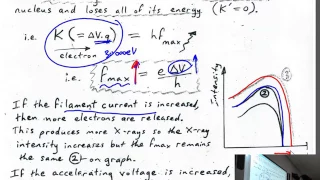 nucleus and loses all of its energy (K'=0).
i.e. K (= ΔV.q) = hfmax
electron 30000eV
i.e. fmax = e ΔV / h
If the filament current is increased,
then more electrons are released.
This produces more X-rays so the X-ray
intensity increases but the fmax remains
the same ② on graph.
If the accelerating voltage is increased,
Intensity
③
②